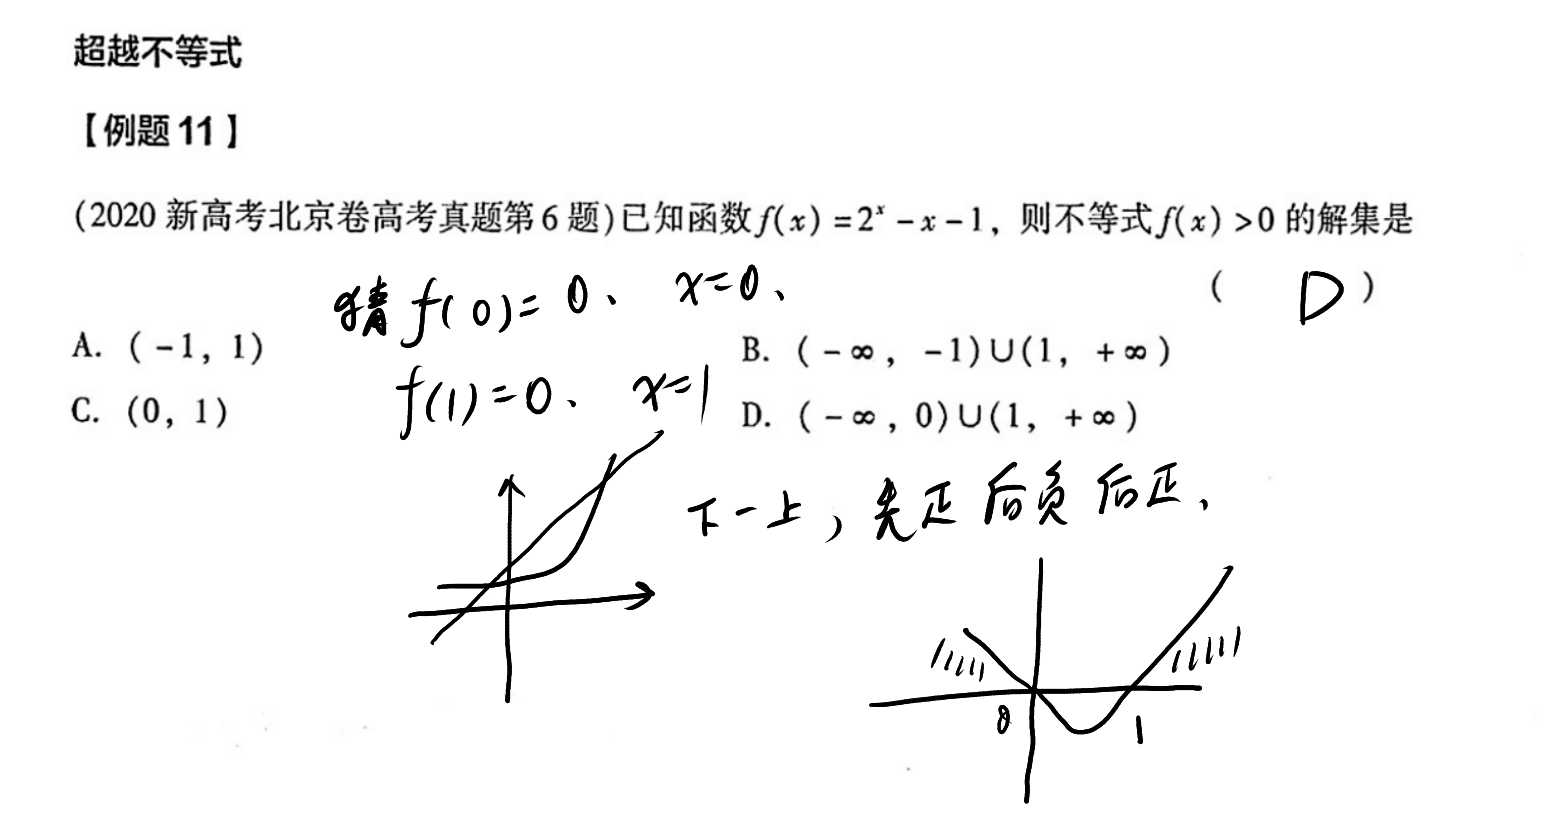 超越不等式
【例题 11】
(2020 新高考北京卷高考真题第 6 题)已知函数 f(x) = 2ˣ - x - 1，则不等式 f(x) > 0 的解集是
( D )
猜 f(0)=0、 x=0、
A. ( -1, 1)
B. ( -∞, -1)∪(1, +∞)
f(1)=0、 x=1
C. (0, 1)
D. ( -∞, 0)∪(1, +∞)
下-上，先正后负后正、
0
1